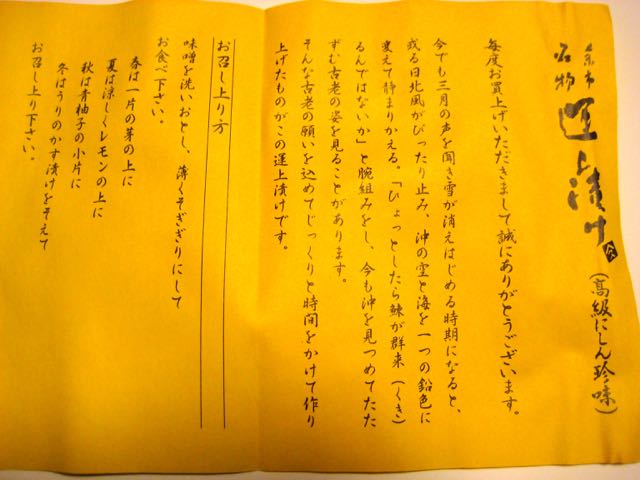 余市
名物
運上漬け
(高級にしん珍味)
毎度お買上げいただきまして誠にありがとうございます。
今でも三月の声を聞き雪が消えはじめる時期になると、
或る日北風がぴったり止み、沖の空と海を一つの鉛色に
変えて静まりかえる。「ひょっとしたら鰊が群来(くき)
るんではないか」と腕組みをし、今も沖を見つめてたた
ずむ古老の姿を見ることがあります。
そんな古老の願いを込めてじっくりと時間をかけて作り
上げたものがこの運上漬けです。
お召し上り方
味噌を洗いおとし、薄くそぎぎりにして
お食べ下さい。
春は一片の芽の上に
夏は涼しくレモンの上に
秋は青柚子の小片に
冬はうりのかす漬けをそえて
お召し上り下さい。